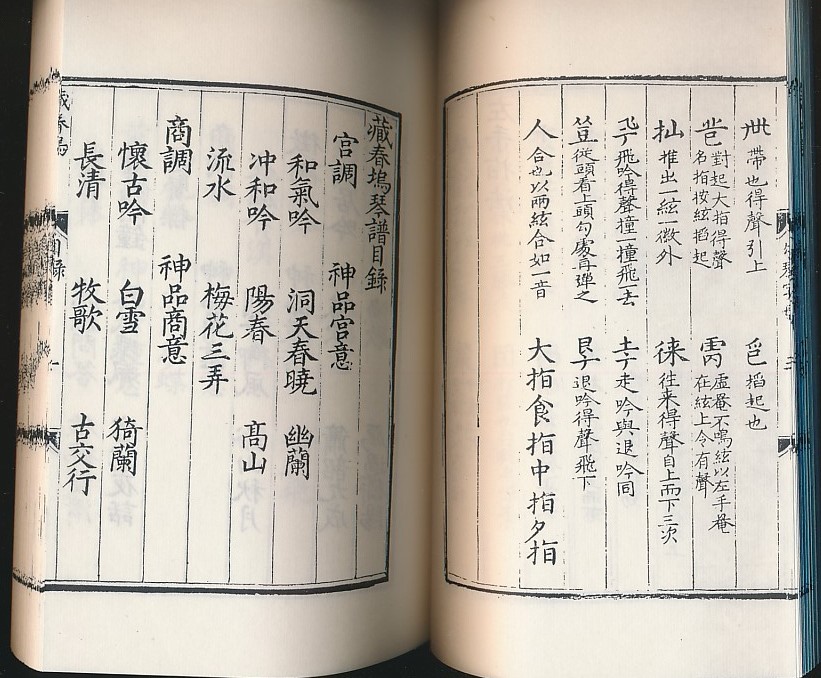 帶也得聲引上
㐌 搯起也
對起大指得聲
名指按絃搯起
虛菴不鳴絃以左手菴
在絃上令有聲
推出一絃一徽外
徠 往来得聲自上而下三次
飛吟得聲撞一撞飛一去
走吟與退吟同
從頭看上頭勾處再彈之
退吟得聲飛下
人 合也以兩絃合如一音
大指食指中指夕指
藏春塢琴譜目録
宮調 神品宮意
和氣吟 洞天春曉 幽蘭
冲和吟 陽春 髙山
流水 梅花三弄
商調 神品商意
懷古吟 白雪 猗蘭
長清 牧歌 古交行
目録 一